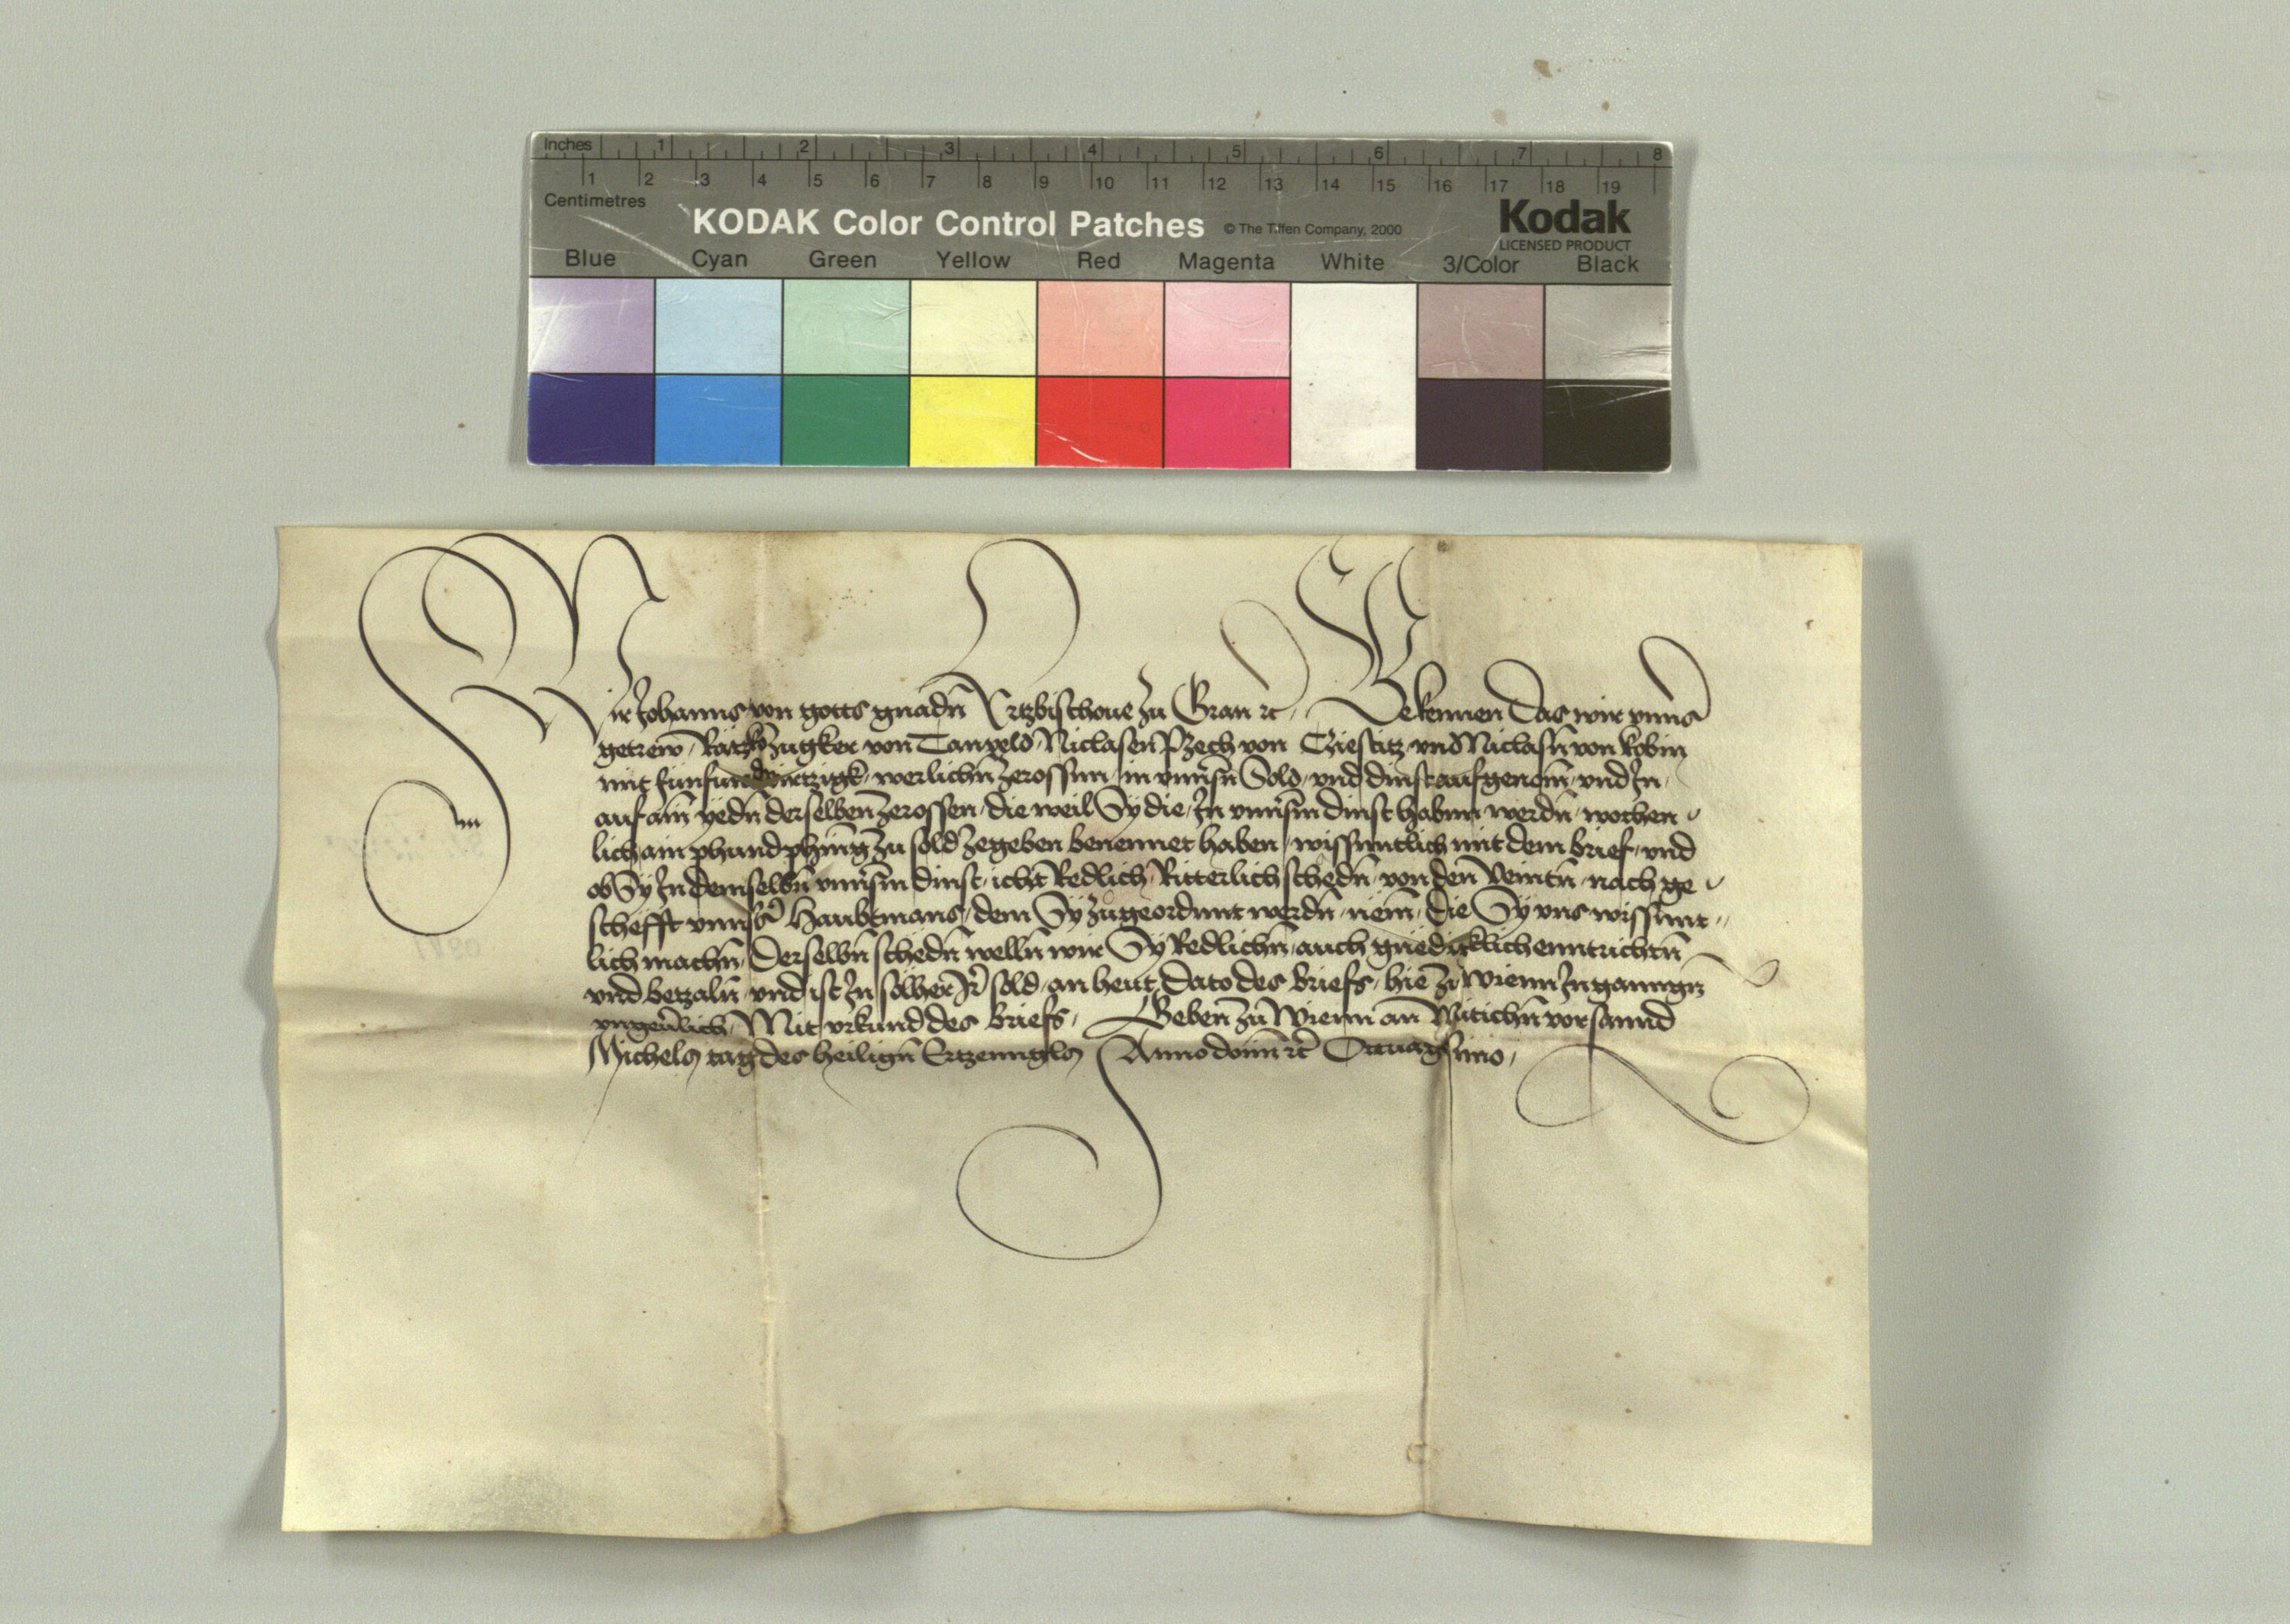 Inches 1 2 3 4 5 6 7 8
1 2 3 4 5 6 7 8 9 10 11 12 13 14 15 16 17 18 19
Centimetres
KODAK Color Control Patches © The Tiffen Company, 2000 Kodak
LICENSED PRODUCT
Blue Cyan Green Yellow Red Magenta White 3/Color Black
Wir Johanns von gotts gnadn̄ Ertzbischoue zu Gran ꝛc Bekennen das wir vnns
getrew von Tanveld Niclasen Pzech von Cziestitz vnd Niclasn̄ von kobin
mit werlichn̄ zerossnn in vnnsn̄ Sold vnd dinst aufgenom̄ vnd In
auf aim̄ yedn̄ derselben zerossen die weil Sy die In vnnsm dinst habnn werdn̄ wochen
lich ain phund phenīg zu sold zegeben benennet haben wissnntlich mit dem brief vnd
ob Sy In demselbn̄ vnnsm dinst icht Redlich Ritterlich schedn̄ von den Veintn̄ nach ge
schefft vnnss Haubtmans dem Sy zugeordnnt werdn̄ nem̄ die Sy vns wissnnt
lich machn̄ Derselbn̄ schedn̄ welln̄ wir Sy Redlichn̄ auch gnedigklich enntrichtn̄
vnd betzaln̄ vnd ist In solher Ir sold an heut dato des briefs hie zu Wienn Inganngn̄
vngeuerlich Mit vrkund des briefs Geben zu Wienn an Mitichn̄ vor sannd
Michels tag des heilign̄ Ertzenngls Anno domī ꝛc Octuagsimo